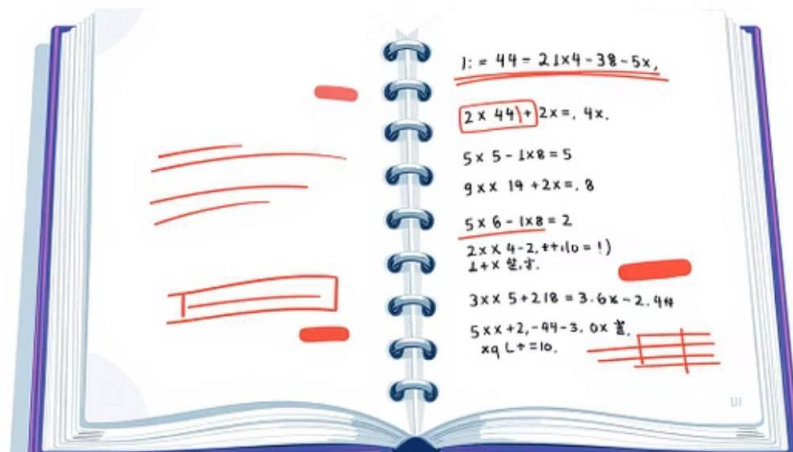 1: = 44 = 21x4-38-5x,
2 x 44)+ 2x=, 4x.
5x 5-1x8=5
9xx 19 +2x=, 8
5x 6-1x8=2
2xx 4-2,
1+x
3xx 5+218 = 3.6x-2.44
5xx+2,-44-3.0x
xq =10.